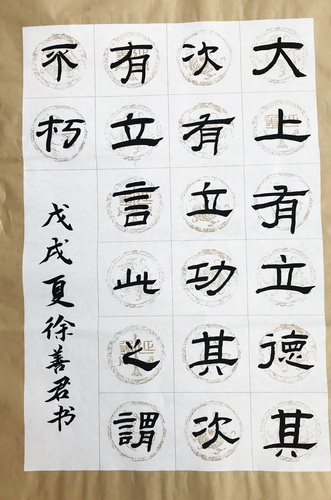 大上有立德其
次有立功其次
有立言此之謂
不朽
戊戌夏徐善君书